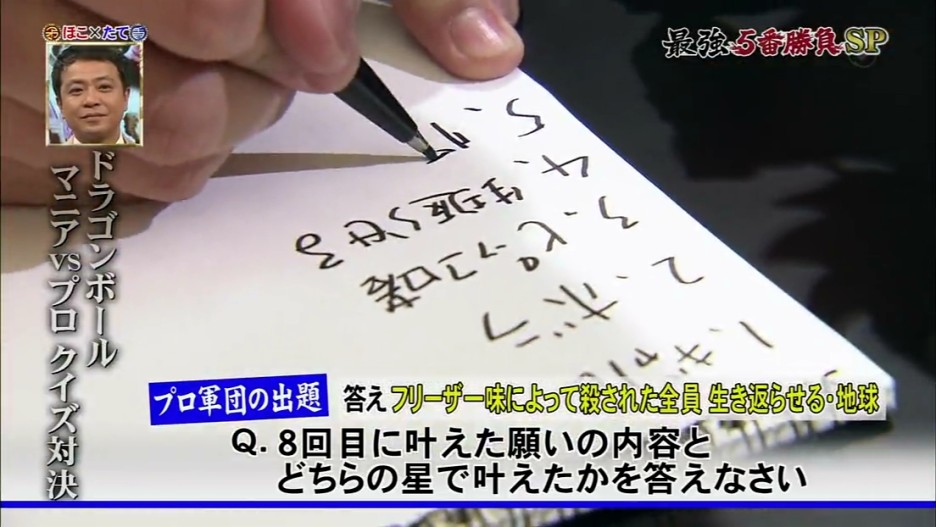 ほこ×たて
最強5番勝負SP
ドラゴンボール
マニアvsプロ クイズ対決
5.
4.
生き返らせる
3.ピッコロ
2.ボラ
1.ギャル
プロ軍団の出題
答え フリーザ一味によって殺された全員 生き返らせる・地球
Q. 8回目に叶えた願いの内容と
どちらの星で叶えたかを答えなさい